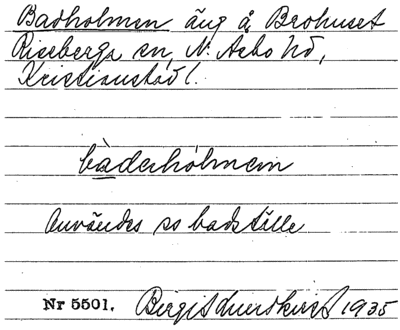 Badholmen äng å Brohuset
Riseberga sn, N. Åsbo hd,
Kristianstad l.
bàderhólmein
Användes so badställe
Nr 5501. Birgit 1935